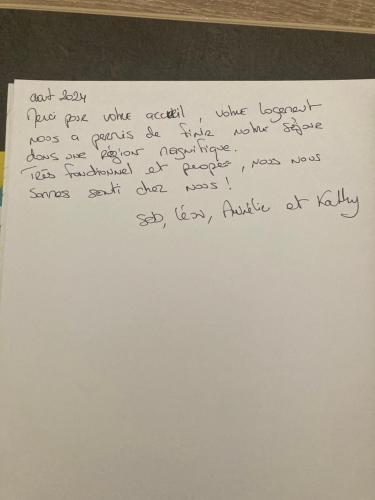 août 2024
Merci pour votre accueil, votre logement
nous a permis de finir notre séjour
dans une région magnifique.
Très fonctionnel et propre, nous nous
sommes senti chez nous !
Seb, Léa, Aurélie et Kathy